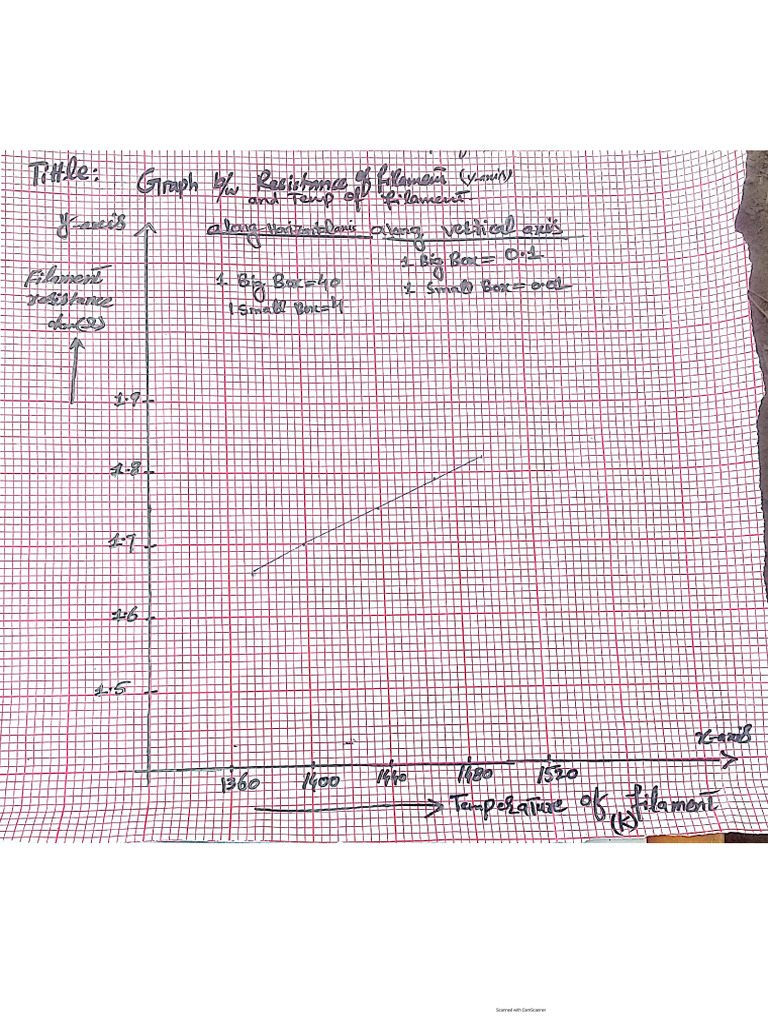 Tittle: Graph b/w Resistance of filament (y-axis)
and Temp of filament
y-axis
along Horizontal axis along vertical axis
1 Big Box=40
1 Small Box=4
1 Big Box= 0.1
1 Small Box=0.01
Filament
resistance
(Ω)
1.9
1.8
1.7
1.6
1.5
x-axis
1360 1400 1440 1480 1520
Temperature of filament
(K)
Scanned with CamScanner